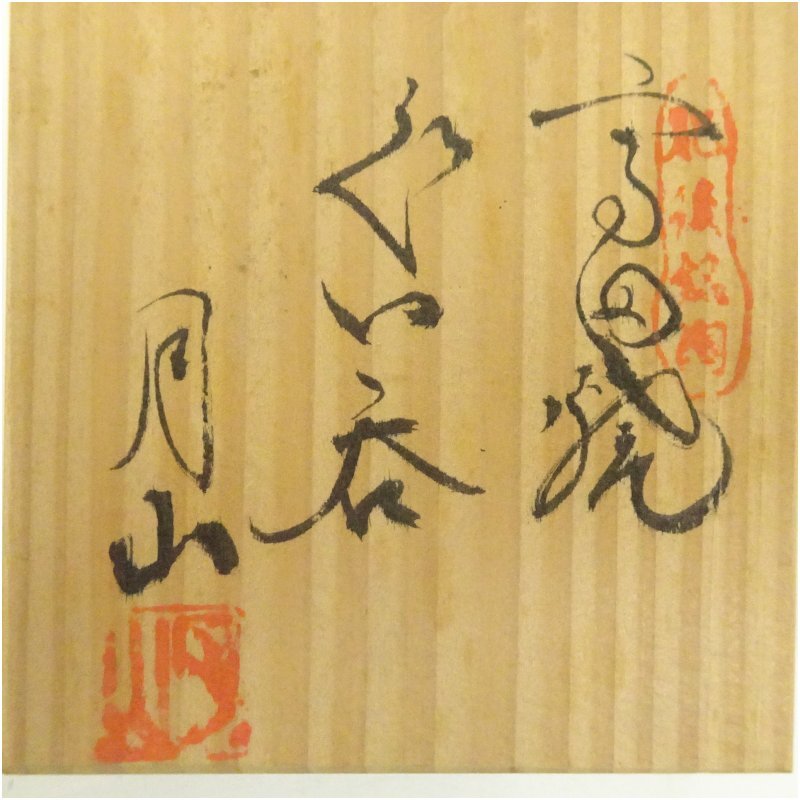 高田焼
ぐい呑
月山